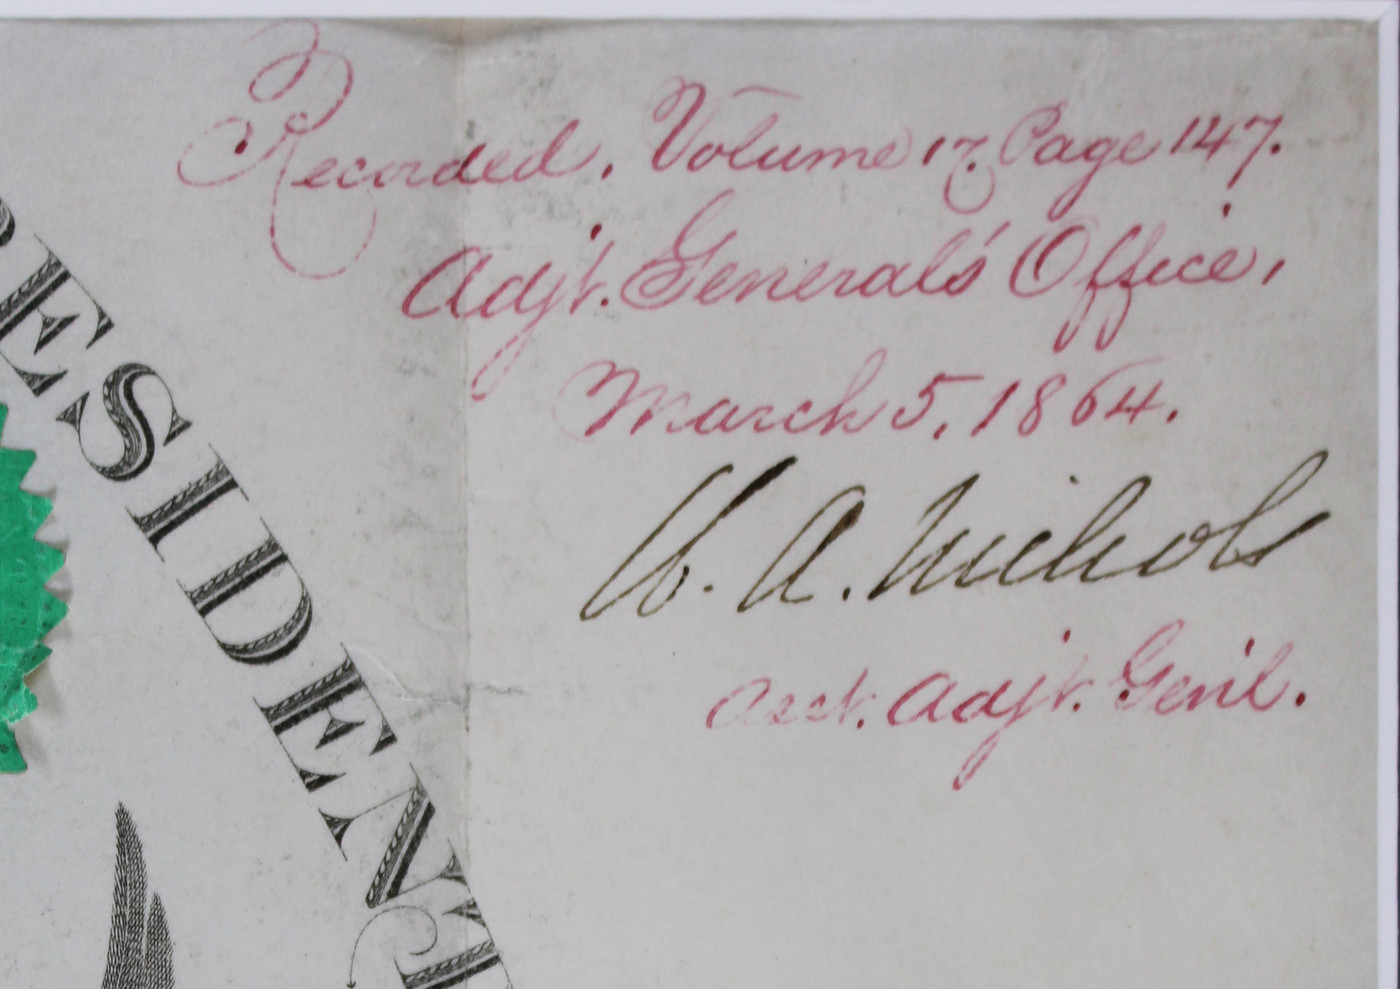 Recorded, Volume 17. Page 147.
Adjt. General's Office,
March 5, 1864.
W. A. Nichols
Asst. Adjt. Gen'l.
RESIDENT